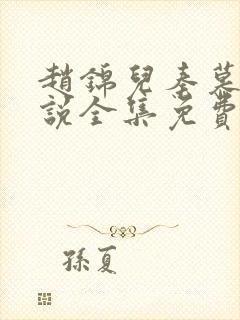 趙錦兒秦慕
說全集免費
孫夏